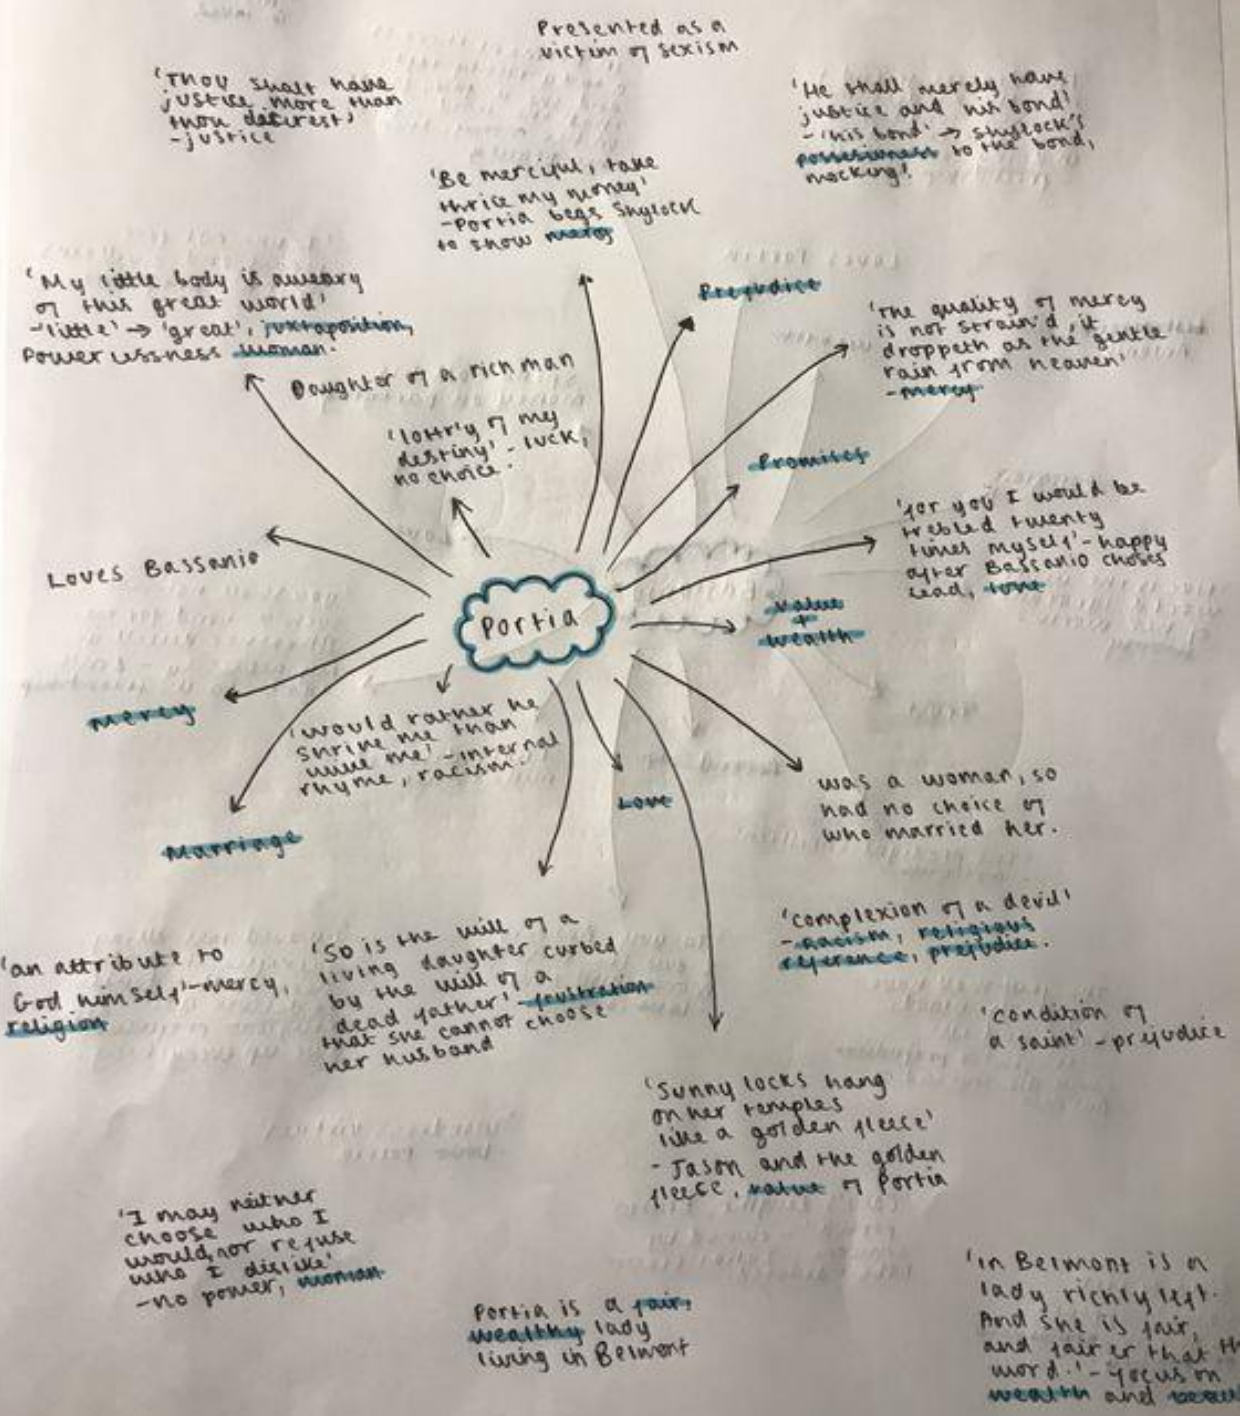 Presented as a
victim of sexism
'Thou shalt have
justice more than
thou desirest'
- justice
'He shall merely have
justice and his bond'
- 'his bond' → Shylock's
possesivness to the bond,
mocking!
'Be merciful, take
thrice my money'
- Portia begs Shylock
to show mercy
'My little body is aweary
of this great world'
- 'little' → 'great', juxtaposition,
powerlessness woman.
Prejudice
'The quality of mercy
is not strain'd, it
droppeth as the gentle
rain from heaven'
- mercy
Daughter of a rich man
'lottr'y of my
destiny' - luck,
no choice.
Promises
'for you I would be
trebled twenty
times myself' - happy
after Bassanio choses
lead, tone
Loves Bassanio
Portia
value
+
wealth
mercy
'would rather he
shrive me than
wive me' - internal
rhyme, racism.
Love
was a woman, so
had no choice of
who married her.
Marriage
'complexion of a devil'
- racism, religious
reference, prejudice.
'an attribute to
God himself' - mercy,
religion
'So is the will of a
living daughter curbed
by the will of a
dead father' - frustration
that she cannot choose
her husband
'condition of
a saint' - prejudice
'Sunny locks hang
on her temples
like a golden fleece'
- Jason and the golden
fleece, value of Portia
'I may neither
choose who I
would, nor refuse
who I dislike'
- no power, woman
Portia is a fair,
wealthy lady
living in Belmont
'in Belmont is a
lady richly left.
And she is fair,
and fairer that
word.' - focus on
wealth and